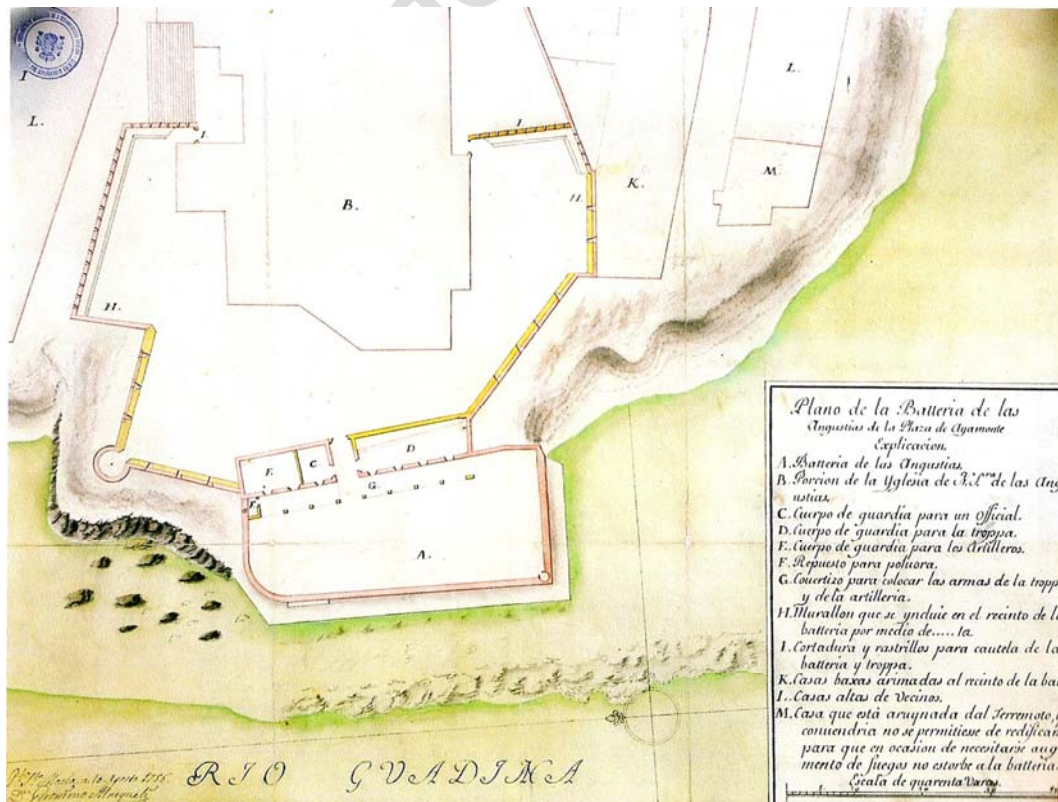 L.
I.
B.
I
K.
L.
M.
H.
H.
E.
C.
D.
G.
F.
A.
Plano de la Batteria de las
Angustias de la Plaza de Ayamonte
Explicacion.
A. Batteria de las Angustias
B. Porcion de la Yglesia de N. S.ra de las Ang
ustias.
C. Cuerpo de guardia para un official.
D. Cuerpo de guardia para la troppa.
E. Cuerpo de guardia para los Artilleros.
F. Repuesto para poluora.
G. Couertizo para colocar las armas de la tropp
y de la artilleria.
H. Murallon que se yncluie en el recinto de la
batteria por medio de..... ta.
I. Cortadura y rastrillos para cautela de la
batteria y troppa.
K. Casas baxas arimadas al recinto de la ba
L. Casas altas de vecinos.
M. Casa que està aruynada dal Terremoto,
conuendria no se permitiese de redifican
para que en ocasion de necesitarse aug
mento de fuegos no estorbe a la batteria.
Escala de quarenta Varas.
RIO GVADINA
a 10 Agosto